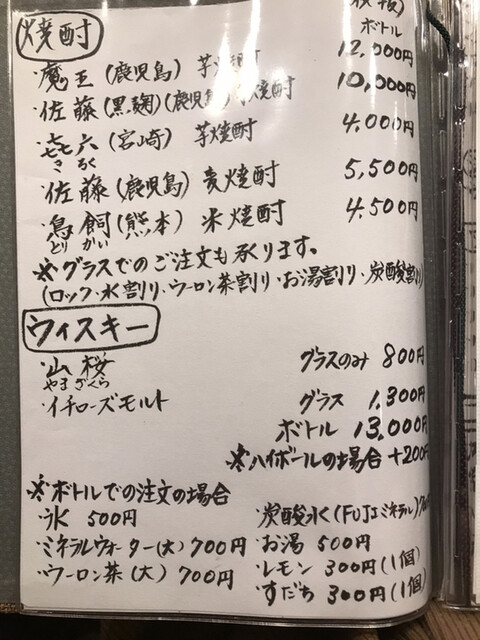 焼酎
ボトル
・魔王(鹿児島) 芋焼酎 12,000円
・佐藤(黒麹)(鹿児島)芋焼酎 10,000円
・㐂六(宮崎) 芋焼酎 4,000円
きろく
・佐藤(鹿児島)麦焼酎 5,500円
・鳥飼(熊本)米焼酎 4,500円
とりかい
※グラスでのご注文も承ります。
(ロック・水割り・ウーロン茶割り・お湯割り・炭酸割り)
ウィスキー
・山桜 グラスのみ 800円
やまざくら
・イチローズモルト グラス 1,300円
ボトル 13,000円
※ハイボールの場合 +200円
※ボトルでの注文の場合
・氷 500円 ・炭酸水(FUJIミネラル)
・ミネラルウォーター(大)700円 ・お湯 500円
・ウーロン茶(大) 700円 ・レモン 300円(1個)
・すだち 300円(1個)